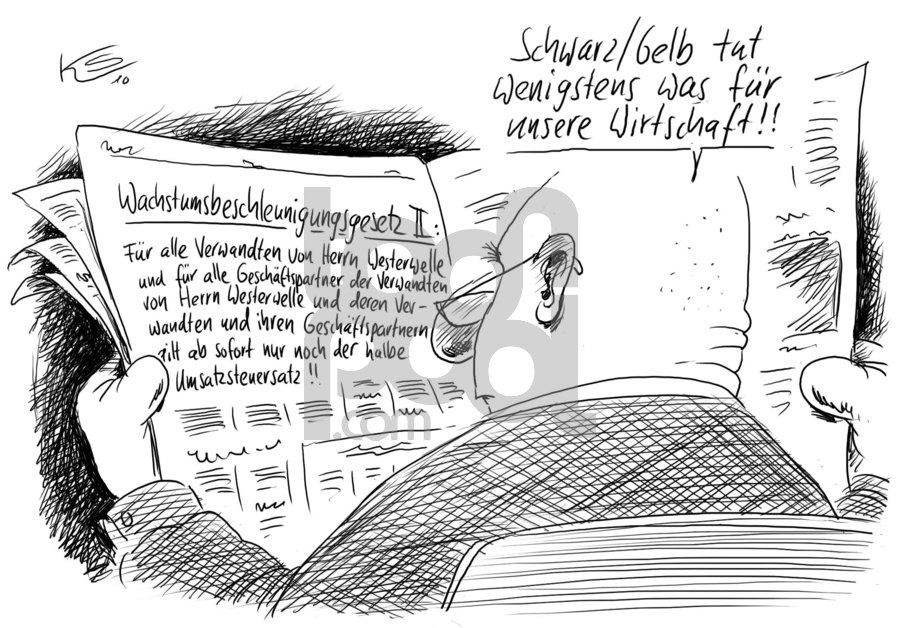 KS 10
Schwarz/Gelb tut
wenigstens was für
unsere Wirtschaft!!
Wachstumsbeschleunigungsgesetz II:
Für alle Verwandten von Herrn Westerwelle
und für alle Geschäftspartner der Verwandten
von Herrn Westerwelle und deren Ver-
wandten und ihren Geschäftspartnern
gilt ab sofort nur noch der halbe
Umsatzsteuersatz !!
toonpool
.com